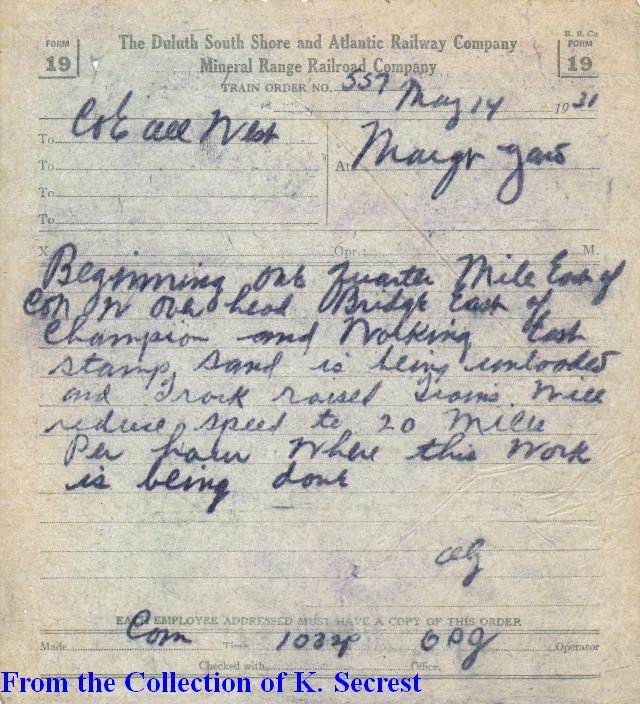 FORM 19
The Duluth South Shore and Atlantic Railway Company
R. B. Co. FORM 19
Mineral Range Railroad Company
TRAIN ORDER NO. 557
May 14 1931
To C&E all West
At Marqt Yard
To
To
To
X Opr.: M.
Beginning one quarter Mile East of
C&N W over head Bridge East of
Champion and Working East
stamp sand is being unloaded
and Track raised Trains Will
reduce speed to 20 Miles
Per hour Where this Work
is being done
EACH EMPLOYEE ADDRESSED MUST HAVE A COPY OF THIS ORDER
Made Com Time 1032P Operator
Checked with Office
From the Collection of K. Secrest